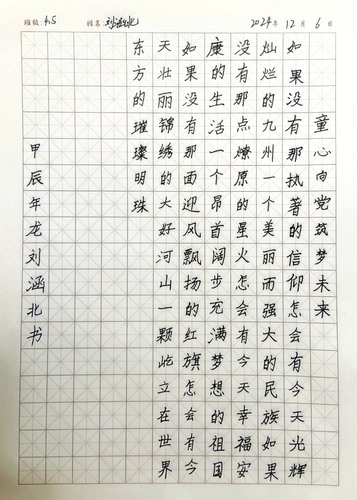 班级 4.5 姓名: 刘涵北 2024年12月6日
童心向党筑梦未来
如果没有那执著的信仰怎会有今天光辉
灿烂的九州一个美丽而强大的民族如果
没有那点燎原的星火怎会有今天幸福安
康的生活一个昂首阔步充满梦想的祖国
如果没有那面迎风飘扬的红旗怎会有今
天壮丽锦绣的大好河山一颗屹立在世界
东方的璀璨明珠
甲辰年龙刘涵北书